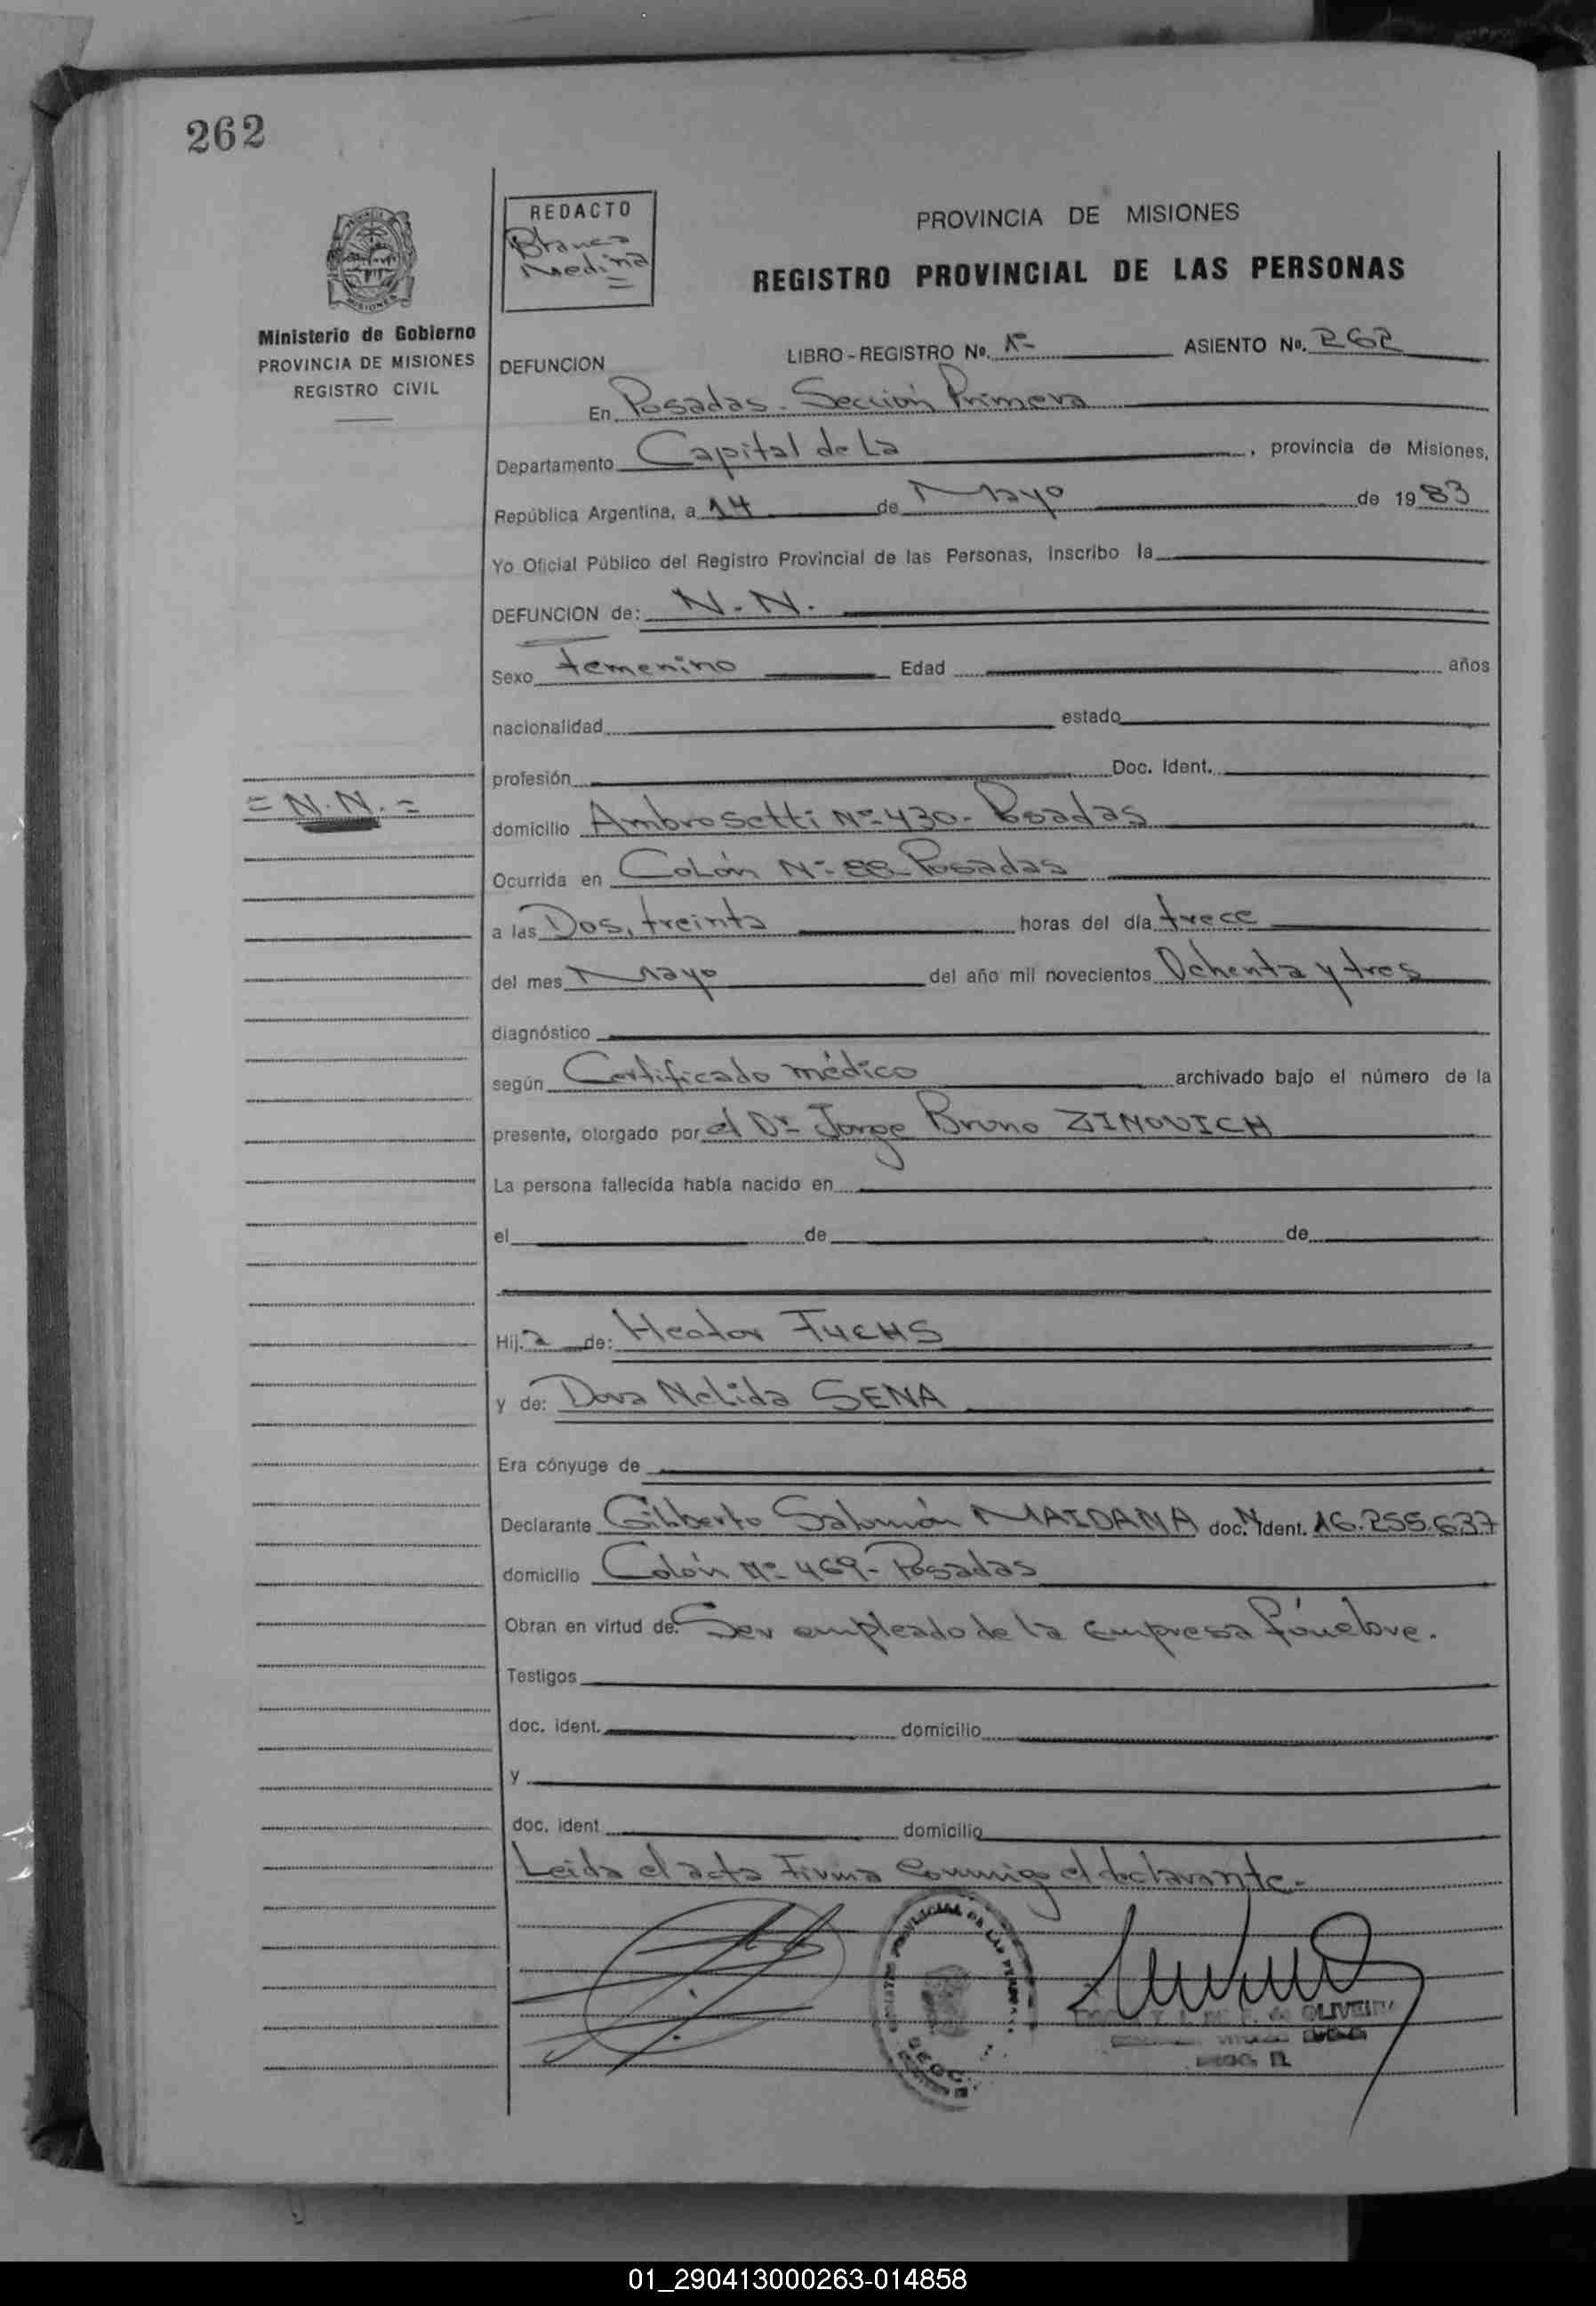 262
REDACTO
Blanca
Medina
PROVINCIA DE MISIONES
REGISTRO PROVINCIAL DE LAS PERSONAS
MISIONES
Ministerio de Gobierno
PROVINCIA DE MISIONES
REGISTRO CIVIL
DEFUNCION LIBRO - REGISTRO Nº. ASIENTO Nº. 262
En Posadas - Sección Primera
Departamento Capital de La , provincia de Misiones,
República Argentina, a 14 de Mayo de 1983
Yo Oficial Público del Registro Provincial de las Personas, inscribo la
DEFUNCION de: N.N.
Sexo Femenino Edad años
nacionalidad estado
profesión Doc. Ident.
= N.N. =
domicilio Ambrosetti Nº 430 - Posadas
Ocurrida en Colón Nº 88 - Posadas
a las Dos, treinta horas del día trece
del mes Mayo del año mil novecientos Ochenta y tres
diagnóstico
según Certificado médico archivado bajo el número de la
presente, otorgado por el Dr Jorge Bruno ZINOVICH
La persona fallecida había nacido en
el de de
Hij a de: Hector FUCHS
y de: Dora Nelida SENA
Era cónyuge de
Declarante Gilberto Salomón MAIDANA doc. N ident. 16.255.637
domicilio Colón Nº 469 - Posadas
Obran en virtud de: Ser empleado de la Empresa fúnebre.
Testigos
doc. ident. domicilio
y
doc. ident domicilio
Leida el acta Firma Conmigo el declarante.
PROVINCIAL DE LAS
de OLIVEIRA
01_290413000263-014858